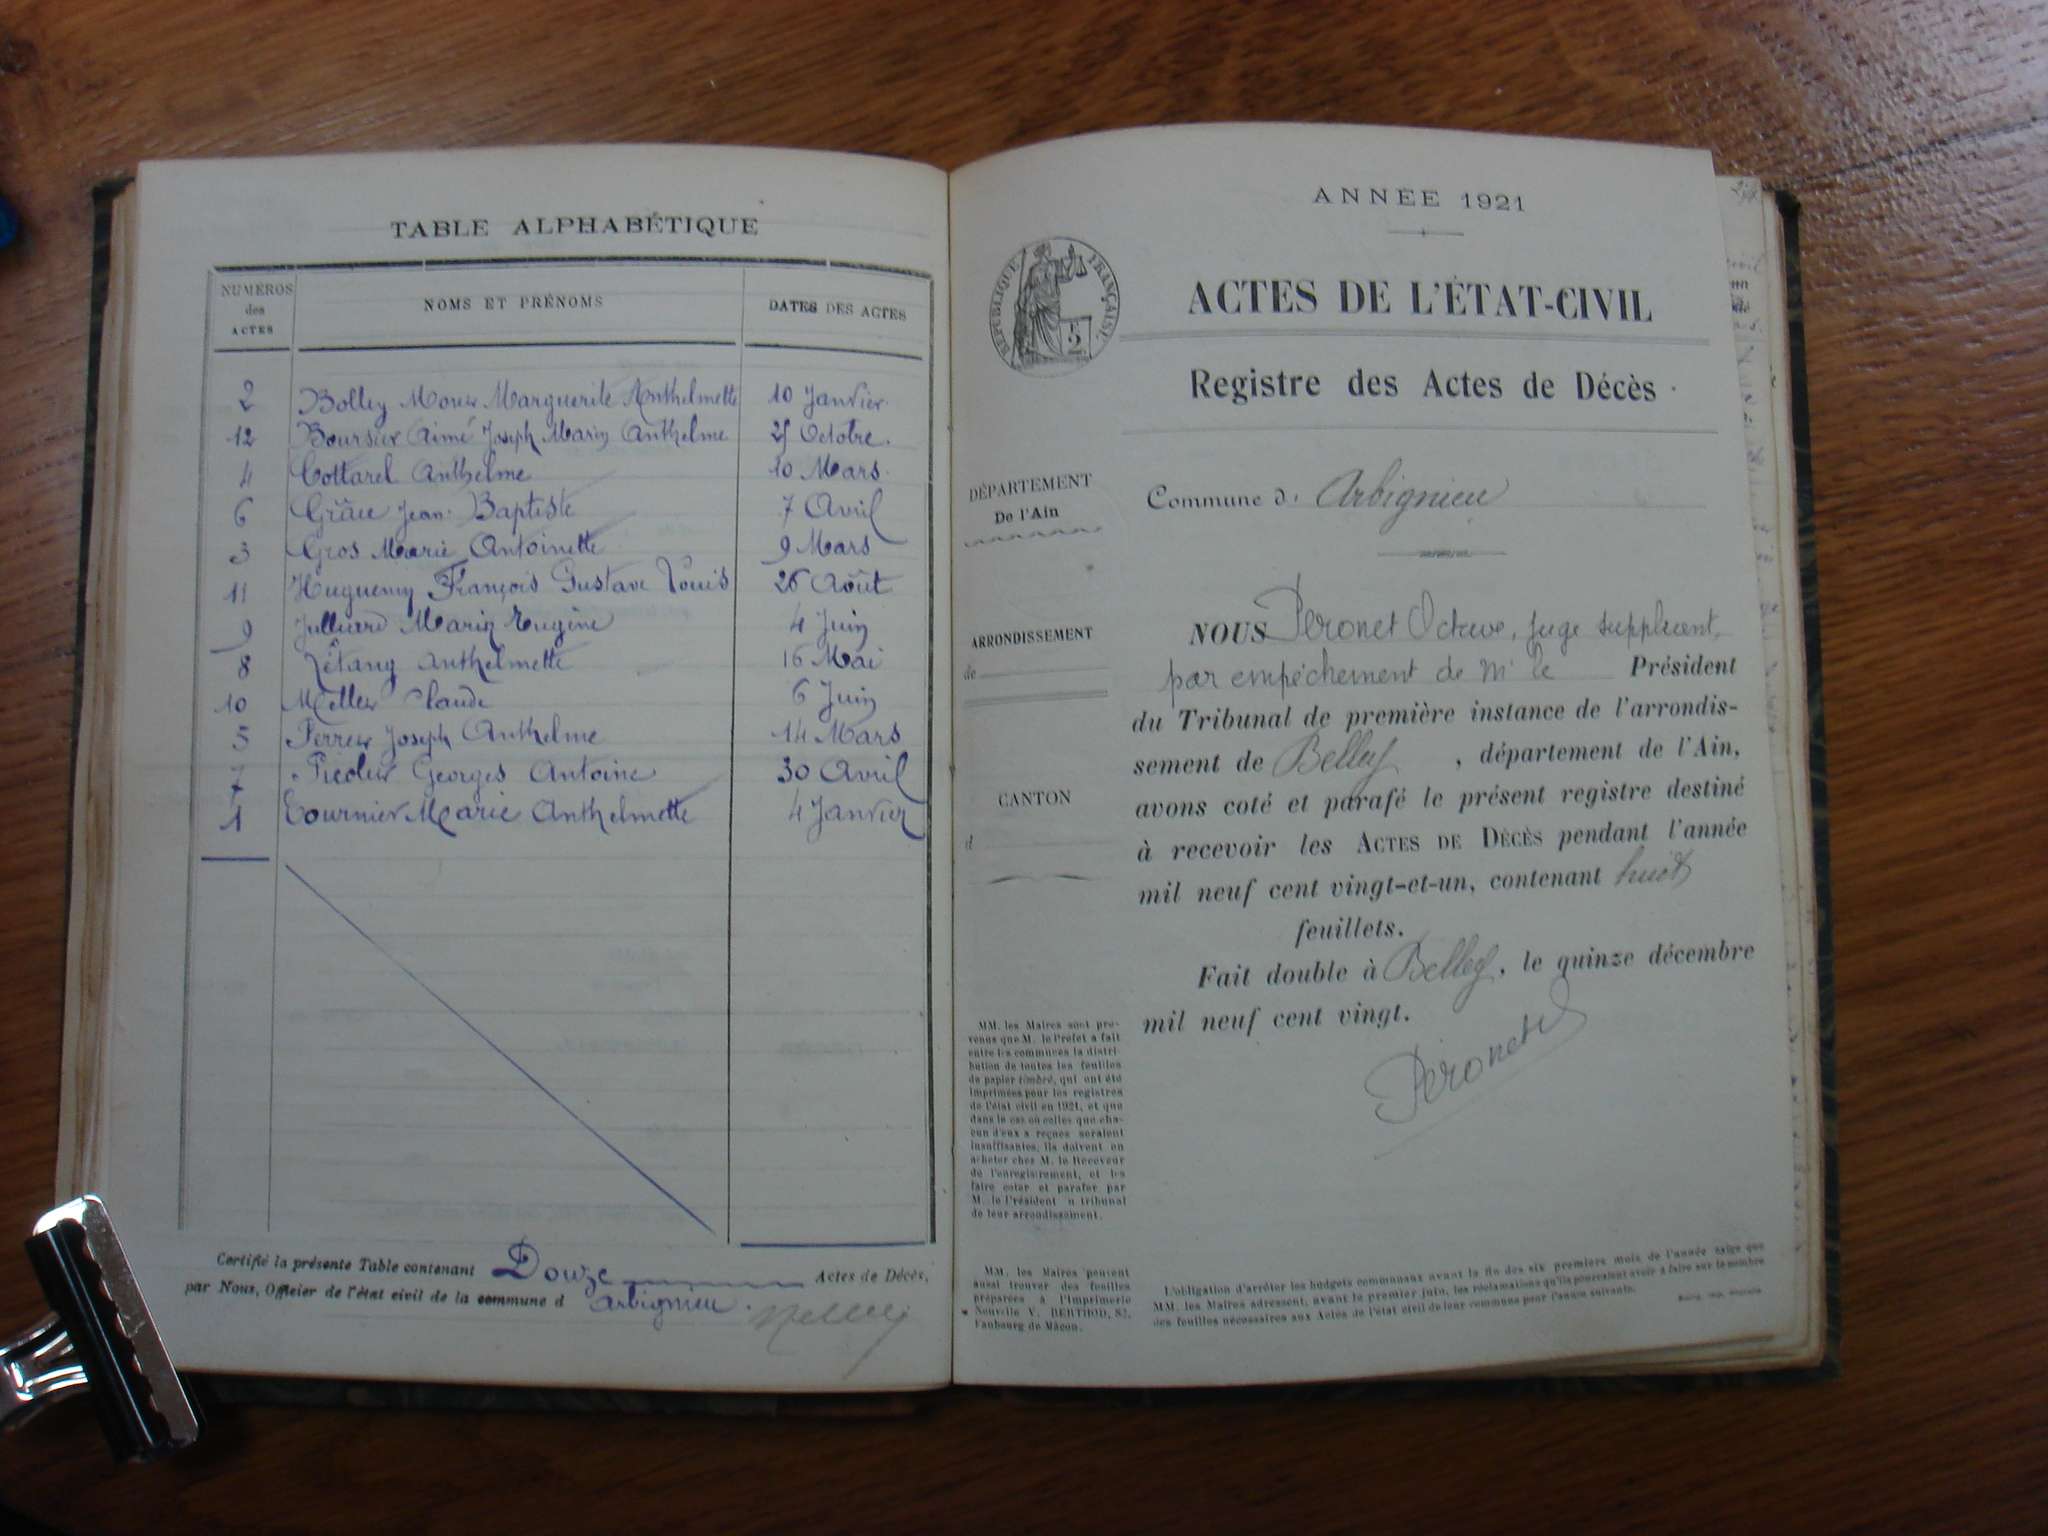 TABLE ALPHABÉTIQUE
NUMÉROS des ACTES NOMS ET PRÉNOMS DATES DES ACTES
2 Bolley Marguerite Anthelmette 10 Janvier.
12 Boursier Aimé Joseph Marin Anthelme 25 Octobre.
4 Cottarel Anthelme 10 Mars.
6 Jean-Baptiste 7 Avril
3 Gros Marie Antoinette 9 Mars
11 Huguenin François Gustave Louis 26 Août
9 Julliard Marin Eugène 4 Juin
8 Létang Anthelmette 16 Mai
10 Claude 6 Juin
5 Joseph Anthelme 14 Mars
7 Georges Antoine 30 Avril
1 Tournier Marie Anthelmette 4 Janvier
Certifié la présente Table contenant Douze Actes de Décès,
par Nous, Officier de l'état civil de la commune d Arbignieu.
ANNÉE 1921
RÉPUBLIQUE FRANÇAISE.
2
ACTES DE L'ÉTAT-CIVIL
Registre des Actes de Décès
DÉPARTEMENT
De l'Ain
Commune d' Arbignieu
ARRONDISSEMENT
de
CANTON
d
NOUS Peronet Octave, juge suppléant,
par empêchement de Mr le Président
du Tribunal de première instance de l'arrondis-
sement de Belley, département de l'Ain,
avons coté et parafé le présent registre destiné
à recevoir les ACTES DE DÉCÈS pendant l'année
mil neuf cent vingt-et-un, contenant huit
feuillets.
Fait double à Belley, le quinze décembre
mil neuf cent vingt.
Peronet
MM. les Maires sont pré-
venus que M. le Préfet a fait
entre les communes la distri-
bution de toutes les feuilles
de papier timbré, qui ont été
imprimées pour les registres
de l'état civil en 1921, et que
dans le cas où celles que cha-
cun d'eux a reçues seraient
insuffisantes, ils doivent en
acheter chez M. le Receveur
de l'enregistrement, et les
faire coter et parafer par
M. le Président n tribunal
de leur arrondissement.
MM. les Maires peuvent
aussi trouver des feuilles
préparées à l'Imprimerie
Nouvelle V. BERTHOD, 82,
Faubourg de Mâcon.
L'obligation d'arrêter les budgets communaux avant la fin des six premiers mois de l'année exige que
MM. les Maires adressent, avant le premier juin, les réclamations qu'ils pourraient avoir à faire sur le nombre
des feuilles nécessaires aux Actes de l'état civil de leur communes pour l'année suivante.